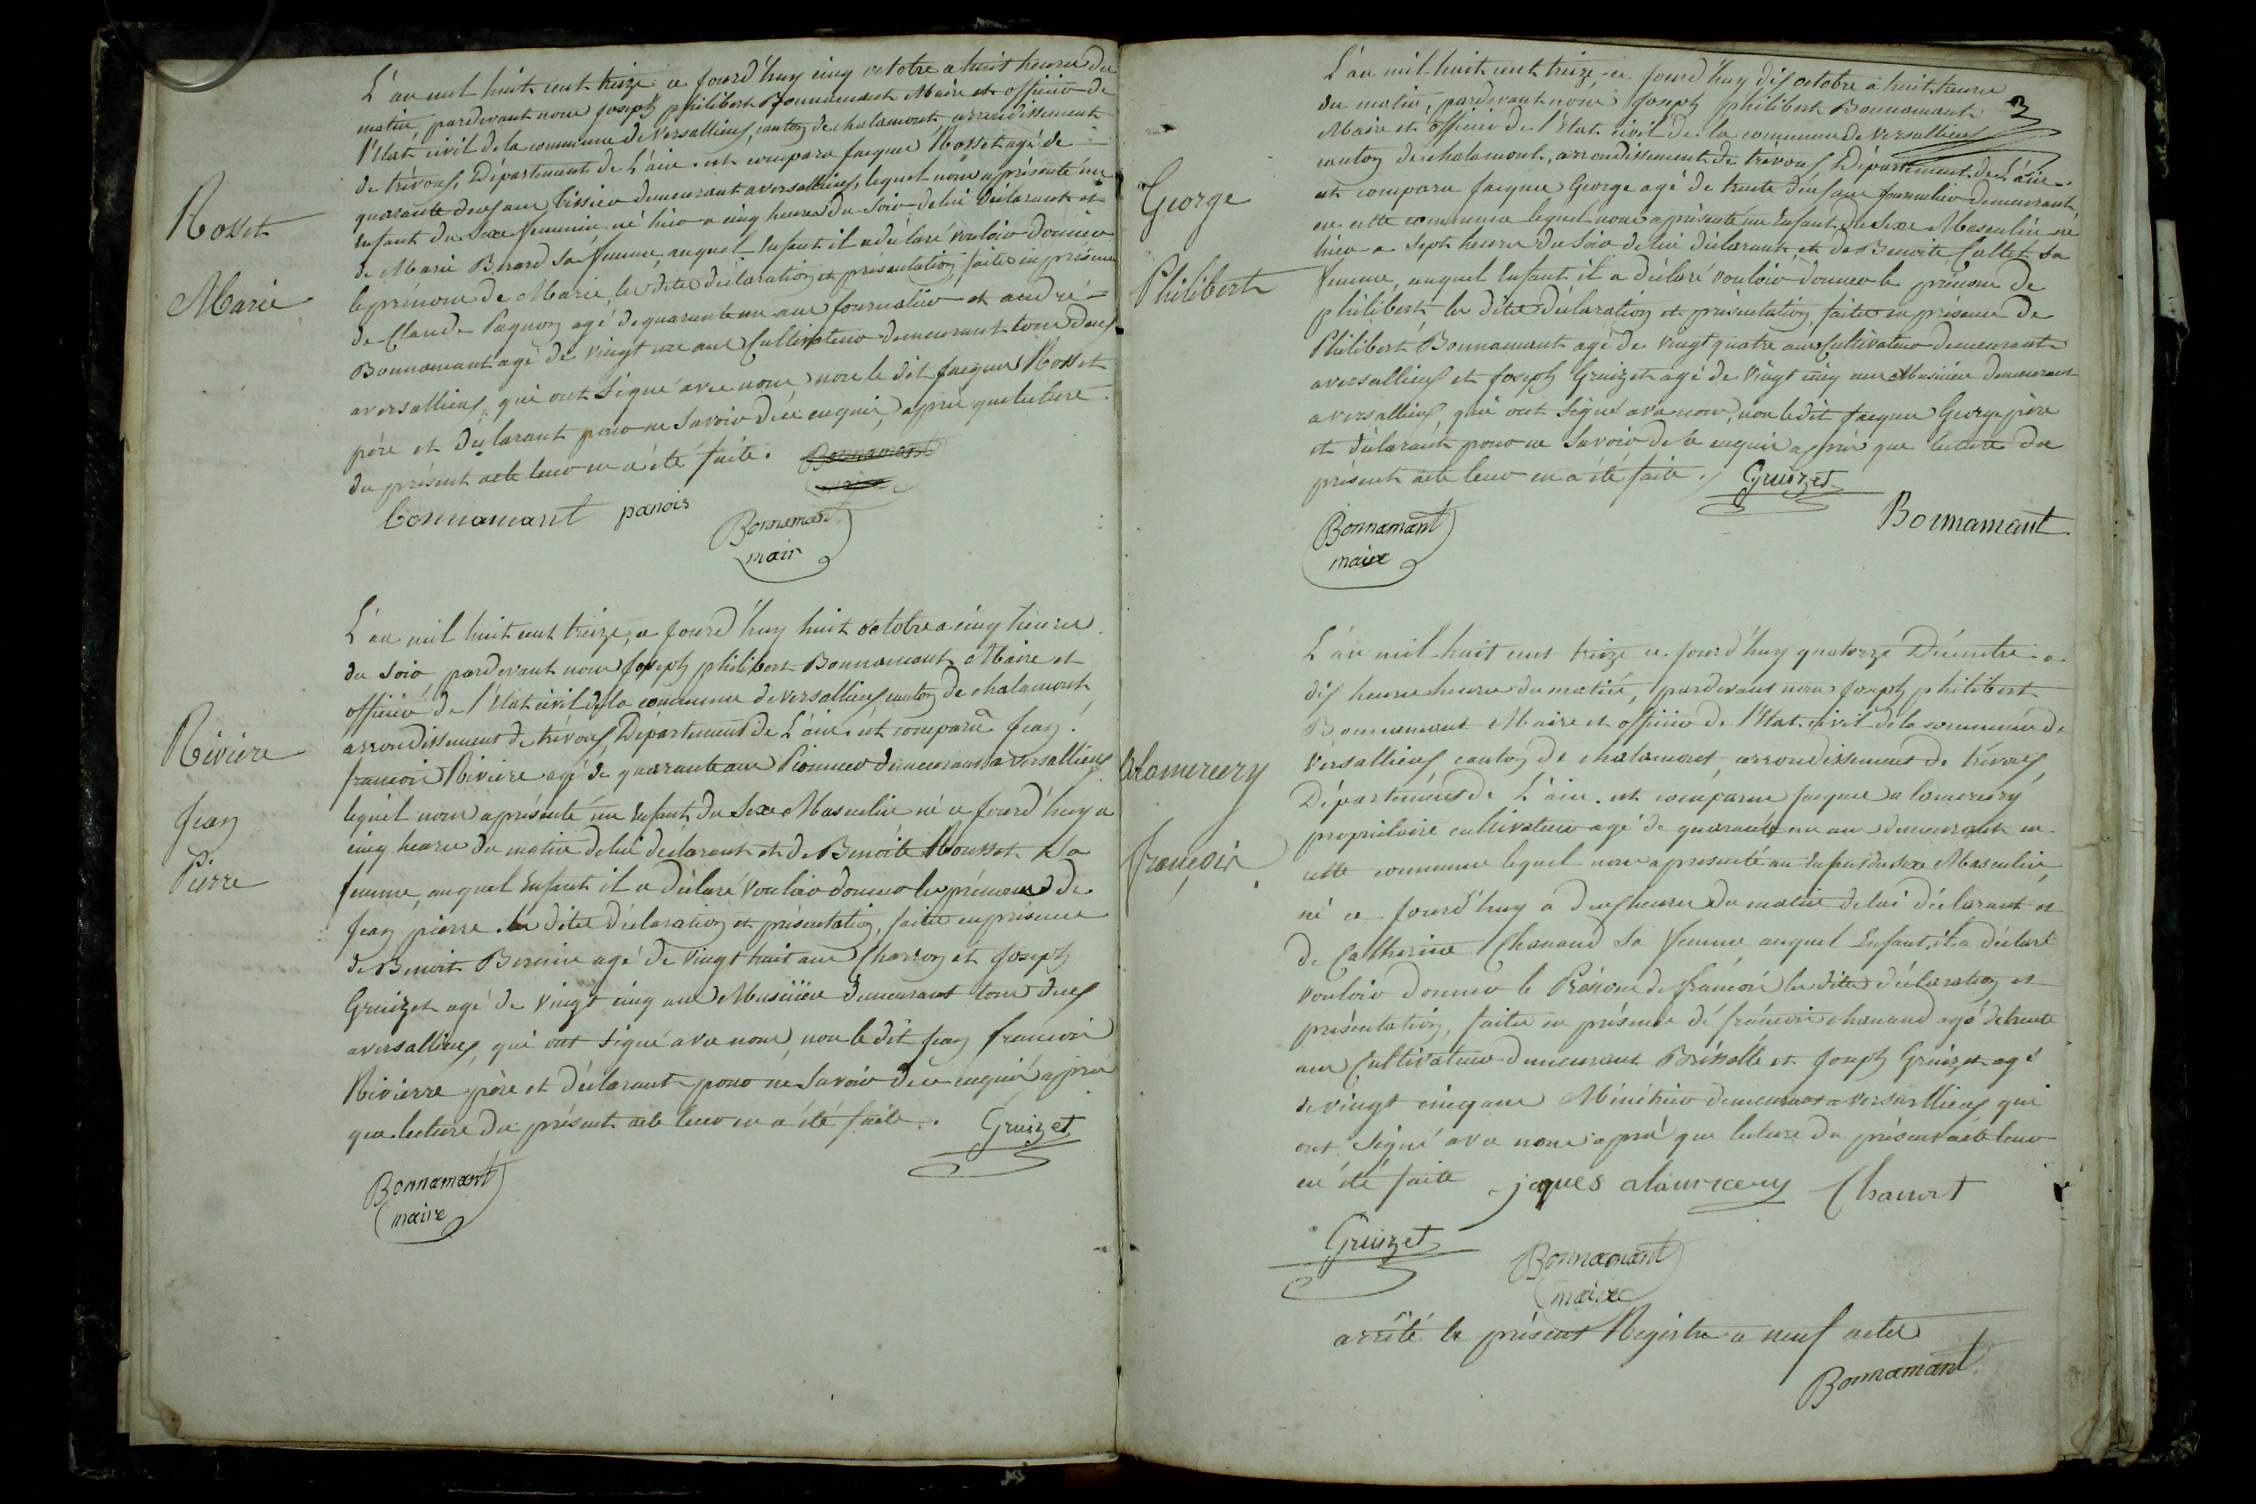 Rosset
Marie
L'an mil huit cent treize ce jourd'huy cinq octobre a huit heures du
matin, pardevant nous joseph philibert Bonnamant Maire et officier de
l'Etat civil de la commune de Versallieux, canton de chalamont arrondissement
de trévoux, Département de L'ain. est comparu jacques Rosset agé de
quarante deux ans Tissier demeurant a versallieux, lequel nous a présenté un
Enfant du Sexe feminin né hier a cinq heures du Soir de lui déclarant et
de Marie Berard Sa femme, auquel Enfant il a déclaré vouloir donner
le prénom de Marie, les dites déclaration et présentation, faites en présence
de Claude Pagnon agé de quarante un ans journalier et andré
Bonnamant agé de vingt un ans Cultivateur demeurant tous deux
a versallieux, qui ont Signé avec nous, non le dit jacques Rosset
père et déclarant pour ne Savoir de ce enquis, après que lecture
du présent acte leur en a été faite. Bonnamant
Bonnamant panois
Bonnamant
mair
Rivière
Jean
Pierre
L'an mil huit cent treize, ce jourd'huy huit octobre a cinq heures
du Soir pardevant nous joseph philibert Bonnamant Maire et
officier de l'Etat civil de la commune de versallieux canton de chalamont,
arrondissement de trévoux, Département de L'ain. est comparu jean
francois Riviere agé de quarante ans Pionnier demeurant a versallieux
lequel nous a présenté un Enfant du Sexe Masculin né ce jourd'huy a
cinq heures du matin de lui déclarant et de Benoite Rousset Sa
femme, auquel Enfant il a déclaré vouloir donner les prénoms de
jean pierre. les dites déclaration et présentation, faites en présence
de Benoit Bernin agé de vingt huit ans Charron et Joseph
Gruizet agé de vingt cinq ans Musicien demeurant tous deux
a versallieux, qui ont signé avec nous, non le dit jean francois
Rivierre père et déclarant pour ne Savoir de ce enquis après
que lecture du présent acte leur en a été faite. Gruizet
Bonnamant
maire
3
George
Philibert
L'an mil huit cent treize ce jourd'huy dix octobre a huit heures
du matin, pardevant nous joseph philibert Bonnamant
Maire et officier de l'Etat civil de la commune de versallieux
canton de chalamont, arrondissement de trévoux Département de L'ain
est comparu jacques George agé de trente deux ans journalier demeurant
en cette commune lequel nous a présenté un Enfant du Sexe Masculin né
hier a Sept heures du Soir de lui déclarant et de Benoite Collet Sa
femme, auquel Enfant il a déclaré vouloir donner le prénom de
philibert les dites déclaration et présentation, faites en présence de
Philibert Bonnamant agé de vingt quatre ans Cultivateur demeurant
a versallieux et joseph Gruizet agé de vingt cinq ans Musicien demeurant
a versallieux, qui ont signé avec nous, non le dit jacques George père
et déclarant pour ne Savoir de ce enquis après que lecture du
présent acte leur en a été faite. Gruizet
Bonnamant
maire
Bonnamant
alamercery
françois
L'an mil huit cent treize ce jourd'huy quatorze Décembre a
dix heures heures du matin, pardevant nous joseph philibert
Bonnamant Maire et officier de l'Etat civil de la commune de
versallieux canton de chalamont, arrondissement de trévoux,
Département de L'ain. est comparu jacques alamercery
propriétaire cultivateur agé de quarante un ans demeurant en
cette commune lequel nous a presenté un Enfant du Sexe Masculin,
né ce jourd'huy a deux heures du matin de lui déclarant et
de Catherine Chanand Sa femme auquel Enfant il a déclaré
vouloir donner le Prénom de françois les dites déclaration et
présentation, faites en présence dé françois chanand agé de trente
ans Cultivateur demeurant et joseph Gruizet agé
de vingt cinq ans Ménétrier demeurant a versarllieux qui
ont signé avec nous après que lecture du présent acte leur
en été faite jaques alamercery
Gruizet
Bonnamant
maire
arrêté le présent Régistre a neuf actes
Bonnamant